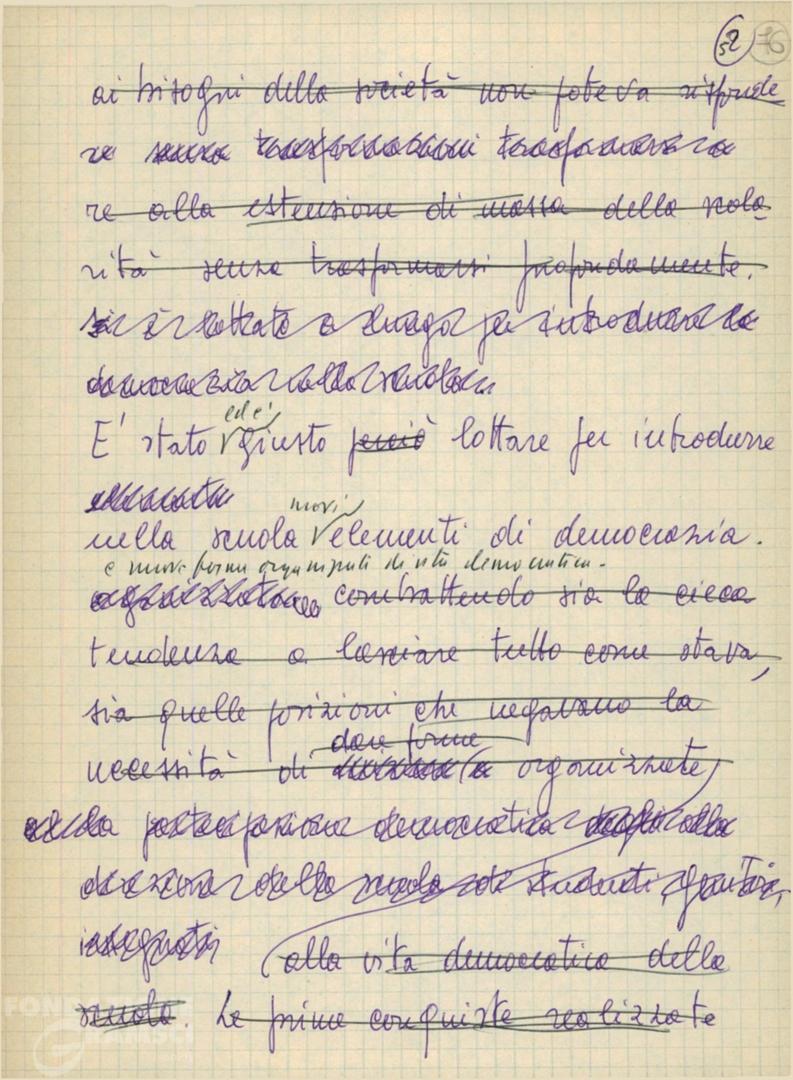 52 76
ai bisogni della società non poteva risponde
re senza trasformazioni
re alla estensione di massa della scola
rità senza trasformarsi profondamente.
si è lottato a lungo per introdurre la
democrazia nella scuola
ed è
E' stato giusto perciò lottare per introdurre
nuovi
nella scuola elementi di democrazia.
e nuove forme organizzate di vita democratica.
combattendo sia la cieca
tendenza a lasciare tutto come stava,
sia quelle posizioni che negavano la
dare forme
necessità di organizzate
partecipazione democratica alla
direzione della scuola di studenti, genitori,
insegnanti (alla vita democratica della
scuola. Le prime conquiste realizzate
FONDAZIONE
GRAMSCI